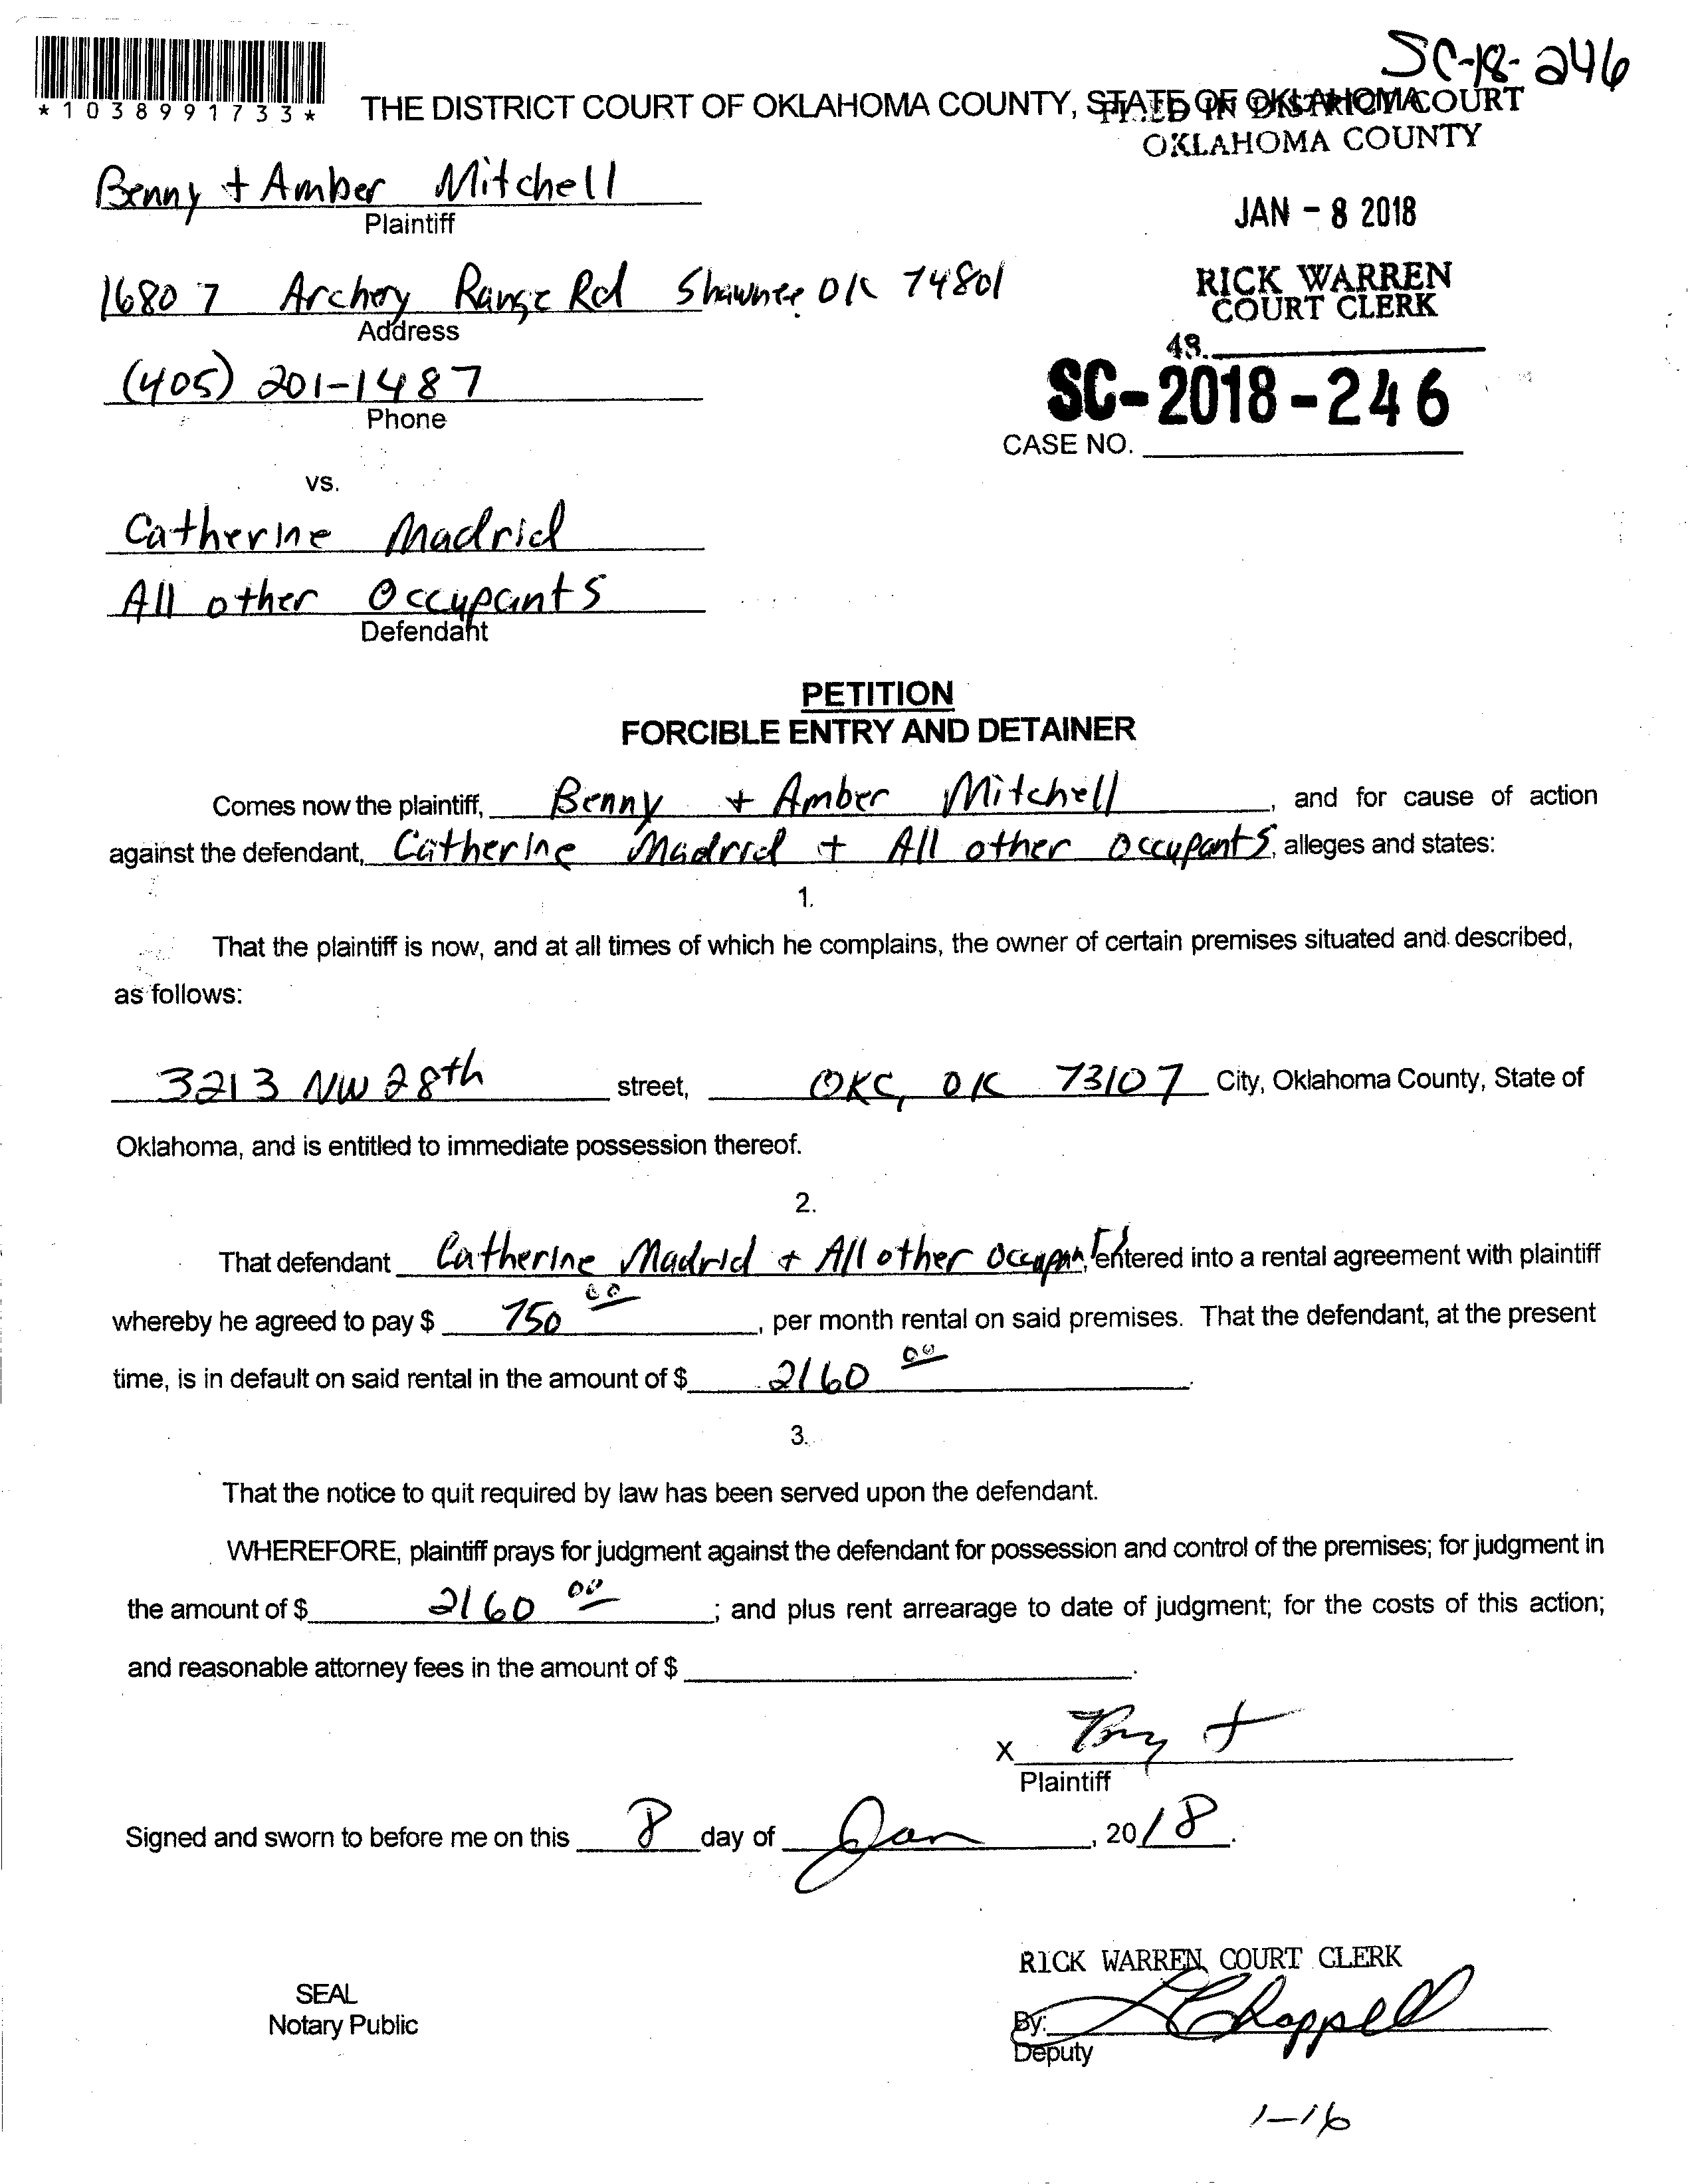 SC-18-246
*1038991733*
THE DISTRICT COURT OF OKLAHOMA COUNTY, STATE OF OKLAHOMA
FILED IN DISTRICT COURT
OKLAHOMA COUNTY
Benny + Amber Mitchell
Plaintiff
JAN - 8 2018
16807 Archery Range Rd Shawnee OK 74801
Address
RICK WARREN
COURT CLERK
48.
(405) 201-1487
Phone
SC-2018-246
CASE NO.
vs.
Catherine Madrid
All other Occupants
Defendant
PETITION
FORCIBLE ENTRY AND DETAINER
Comes now the plaintiff, Benny + Amber Mitchell, and for cause of action
against the defendant, Catherine Madrid + All other Occupants, alleges and states:
1.
That the plaintiff is now, and at all times of which he complains, the owner of certain premises situated and described,
as follows:
3213 NW 28th street, OKC, OK 73107 City, Oklahoma County, State of
Oklahoma, and is entitled to immediate possession thereof.
2.
That defendant Catherine Madrid + All other Occupants, entered into a rental agreement with plaintiff
whereby he agreed to pay $ 750 00, per month rental on said premises. That the defendant, at the present
time, is in default on said rental in the amount of $ 2160 00.
3.
That the notice to quit required by law has been served upon the defendant.
WHEREFORE, plaintiff prays for judgment against the defendant for possession and control of the premises; for judgment in
the amount of $ 2160 00; and plus rent arrearage to date of judgment; for the costs of this action;
and reasonable attorney fees in the amount of $ .
X
Plaintiff
Signed and sworn to before me on this 8 day of Jan, 2018.
RICK WARREN, COURT CLERK
SEAL
Notary Public
By: Chappell
Deputy
1-16